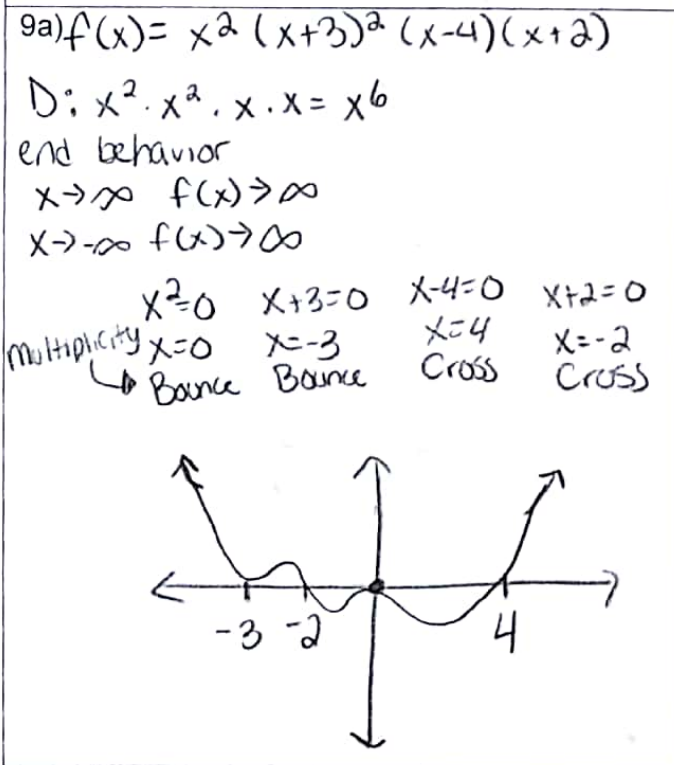 9a) f(x) = x² (x+3)² (x-4)(x+2)
D: x² · x² · x · x = x⁶
end behavior
x→∞ f(x)→∞
x→-∞ f(x)→∞
x²=0 x+3=0 x-4=0 x+2=0
Multiplicity x=0 x=-3 x=4 x=-2
Bounce Bounce Cross Cross
-3 -2 4